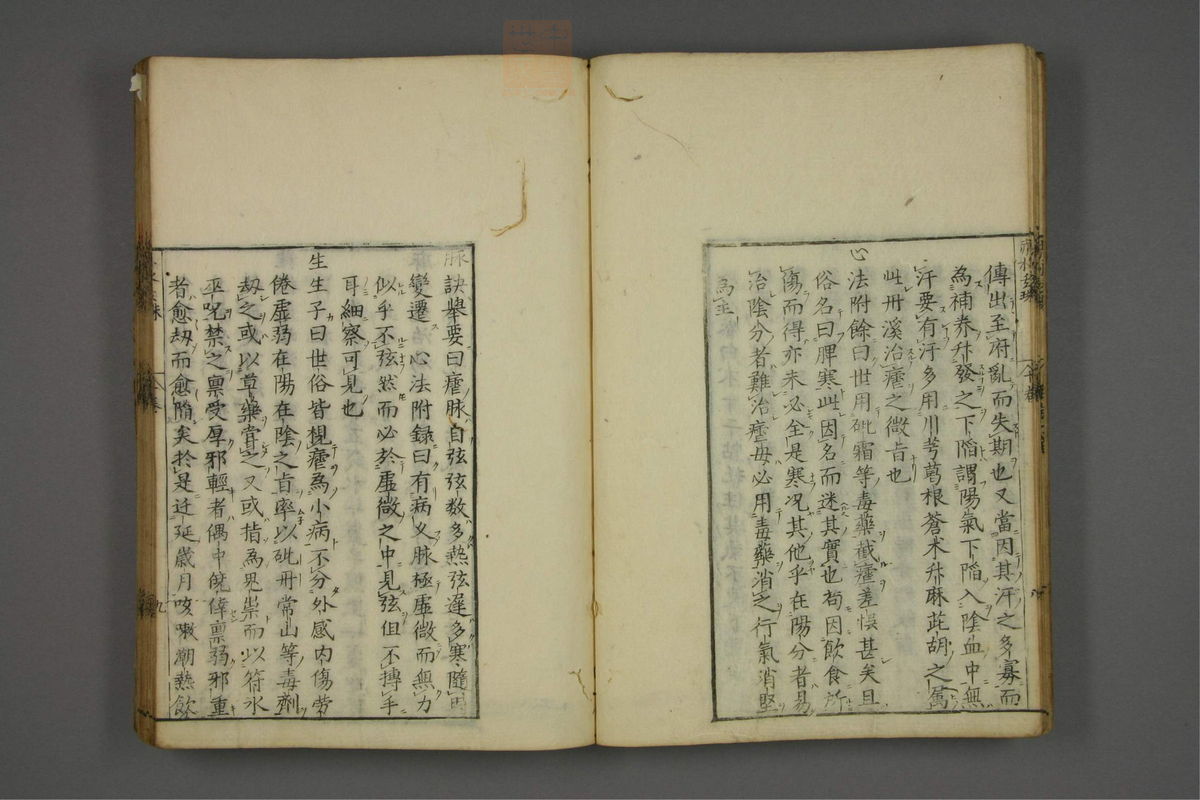 傳出至府亂而失期也又當因其汗之多寡而
為補养升發之下陷謂陽氣下陷入陰血中無
汗要有汗多用川芎葛根蒼术升麻茈胡之属
此丹溪治瘧之微旨也
心法附餘曰世用砒霜等毒藥截瘧差悮甚矣且
俗名曰脾寒此因名而迷其實也苟因飲食所
傷而得亦未必全是寒况其他乎在陽分者易
治陰分者難治瘧毋必用毒藥消之行氣消堅
為主
脉訣舉要曰瘧脉自弦弦数多熱弦遲多寒隨時
變遷 心法附録曰有病乆脉極虚微而無力
似乎不弦然而必於虚微之中見弦但不搏手
耳細察可見也
生生子曰世俗皆視瘧為小病不分外感内傷労
倦虚弱在陽在陰之旨率以砒丹常山等毒劑
刼之或以草藥甞之又或指為鬼祟而以符水
巫呪禁之禀受厚邪輕者偶中僥倖禀弱邪重
者愈刼而愈隨矣於是迁延歳月咳嗽潮熱飲